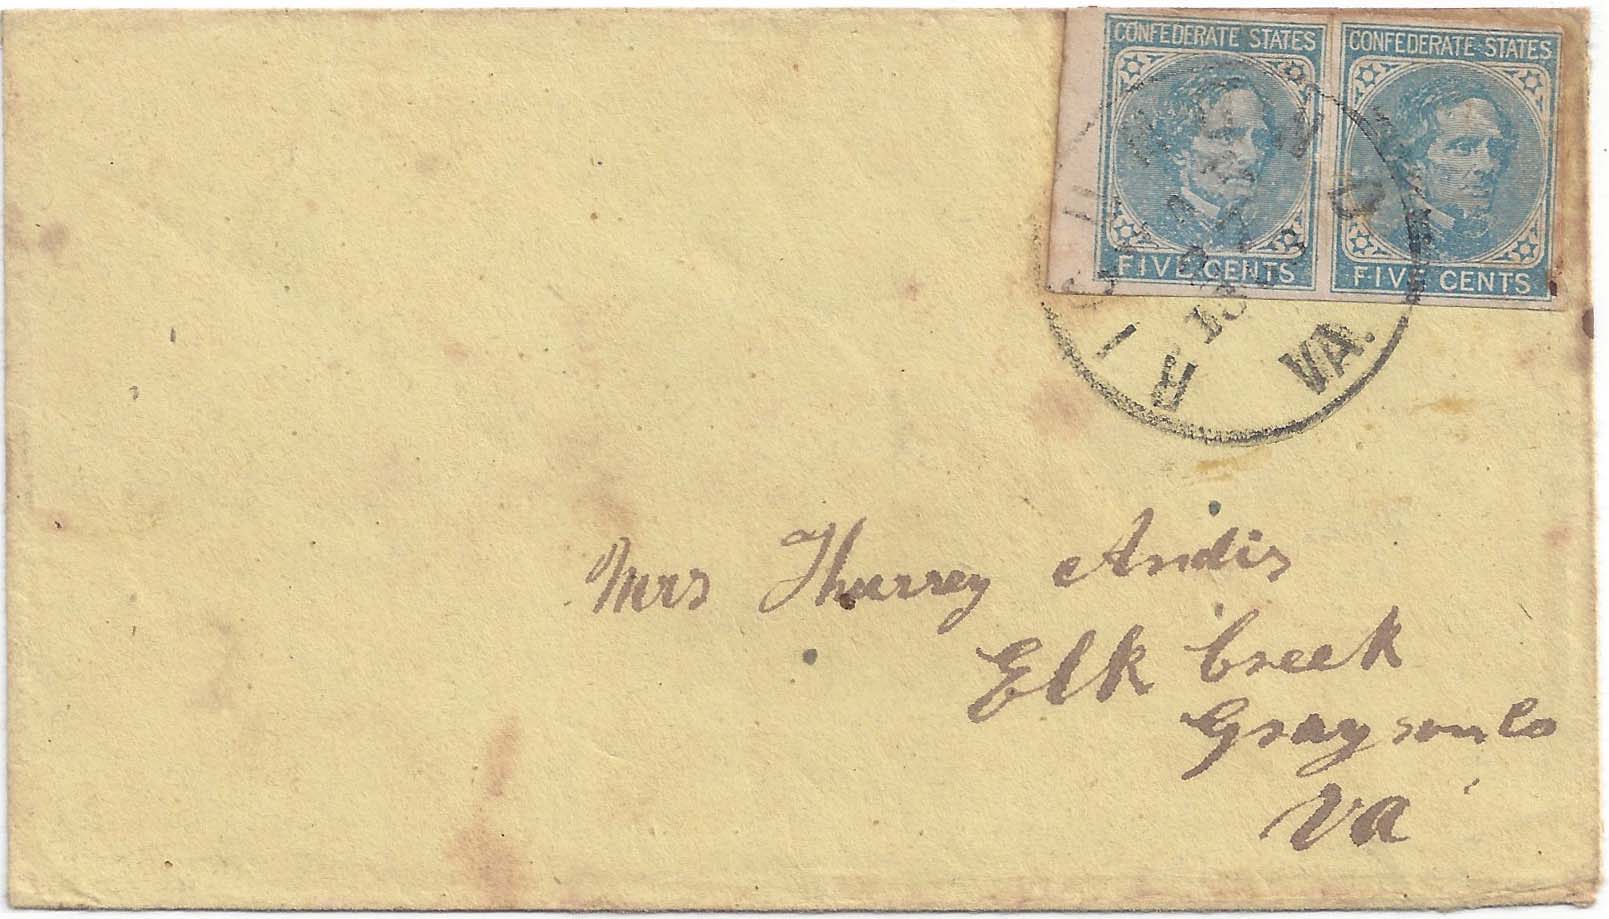 CONFEDERATE STATES
FIVE CENTS
CONFEDERATE STATES
FIVE CENTS
RICHMOND
VA.
Mrs Thursey Andis
Elk Creek
Grayson Co
Va